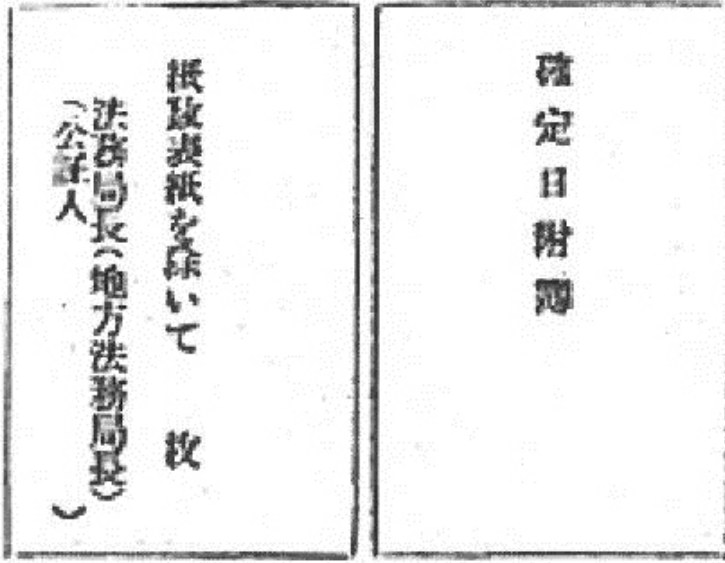 確定日附簿
紙数表紙を除いて 枚
法務局長(地方法務局長)
(公証人 )